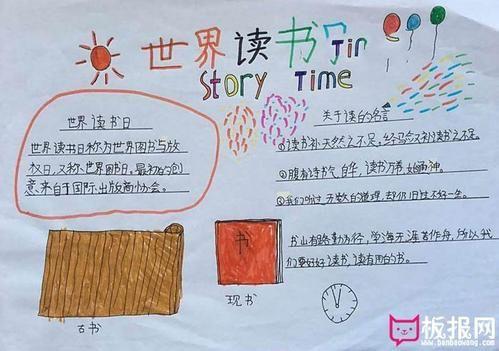 世界读书
Story Time
世界读书日
世界读书日称为世界图书与版
权日,又称世界图书日。最初的创
意来自于国际出版商协会。
关于读的名言
①读书补天然之不足,经验又补读书之不足。
②腹有诗书气自华,读书万卷始通神。
③我们听过无数的道理,却仍旧过不好一生。
书山有路勤为径,学海无涯苦作舟,所以我
们要好好读书,读有用的书。
书
古书
现书
板报网
www.banbaowang.com